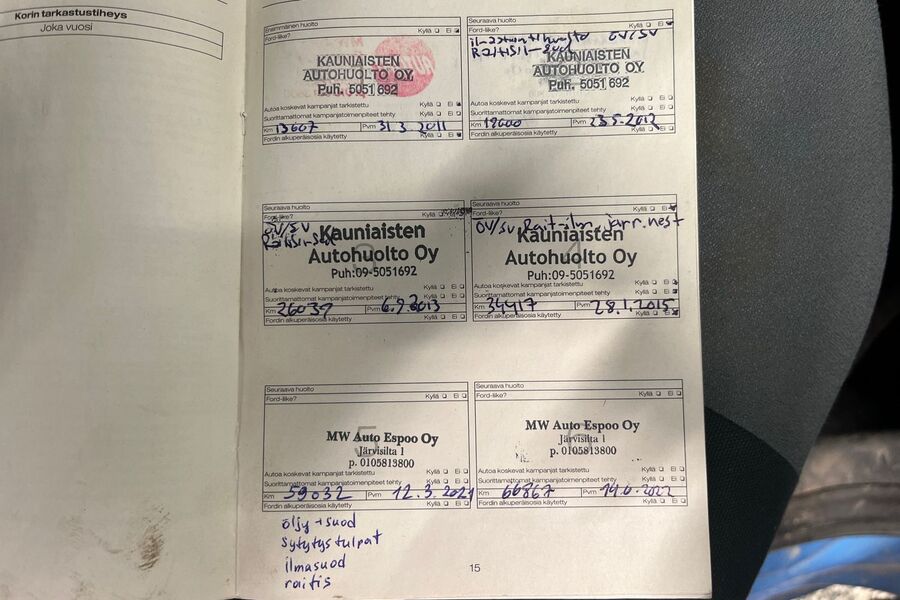 Korin tarkastustiheys
Joka vuosi
Ensimmäinen huolto
Ford-liike? Kyllä Ei
KAUNIAISTEN
AUTOHUOLTO OY
Puh. 5051 692
Autoa koskevat kampanjat tarkistettu Kyllä Ei
Suorittamattomat kampanjatoimenpiteet tehty Kyllä Ei
Km 13607 Pvm 31.3.2011
Fordin alkuperäisosia käytetty Kyllä Ei
Seuraava huolto
Ford-liike? Kyllä Ei
ÖV/SV
KAUNIAISTEN
AUTOHUOLTO OY
Puh. 5051 692
Autoa koskevat kampanjat tarkistettu Kyllä Ei
Suorittamattomat kampanjatoimenpiteet tehty Kyllä Ei
Km Pvm 23.5.2012
Fordin alkuperäisosia käytetty Kyllä Ei
Seuraava huolto
Ford-liike? Kyllä Ei
ÖV/SV
3
Kauniaisten
Autohuolto Oy
Puh:09-5051692
Autoa koskevat kampanjat tarkistettu Kyllä Ei
Suorittamattomat kampanjatoimenpiteet tehty Kyllä Ei
Km 26037 Pvm 6.9.2013
Fordin alkuperäisosia käytetty Kyllä Ei
Seuraava huolto
Ford-liike? Kyllä Ei
ÖV/SV Rait.ilm, jarr.nest
4
Kauniaisten
Autohuolto Oy
Puh:09-5051692
Autoa koskevat kampanjat tarkistettu Kyllä Ei
Suorittamattomat kampanjatoimenpiteet tehty Kyllä Ei
Km 34417 Pvm 28.1.2015
Fordin alkuperäisosia käytetty Kyllä Ei
Seuraava huolto
Ford-liike? Kyllä Ei
5
MW Auto Espoo Oy
Järvisilta 1
p. 0105813800
Autoa koskevat kampanjat tarkistettu Kyllä Ei
Suorittamattomat kampanjatoimenpiteet tehty Kyllä Ei
Km 59032 Pvm 12.3.2021
Fordin alkuperäisosia käytetty Kyllä Ei
öljy + suod
sytytystulpat
ilmasuod
raitis
Seuraava huolto
Ford-liike? Kyllä Ei
6
MW Auto Espoo Oy
Järvisilta 1
p. 0105813800
Autoa koskevat kampanjat tarkistettu Kyllä Ei
Suorittamattomat kampanjatoimenpiteet tehty Kyllä Ei
Km 66867 Pvm 14.6.2022
Fordin alkuperäisosia käytetty Kyllä Ei
15